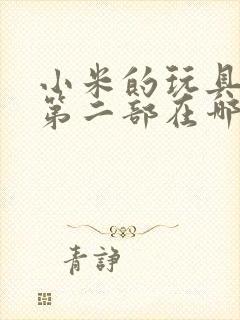 小米的玩具
第二部在哪
青諍